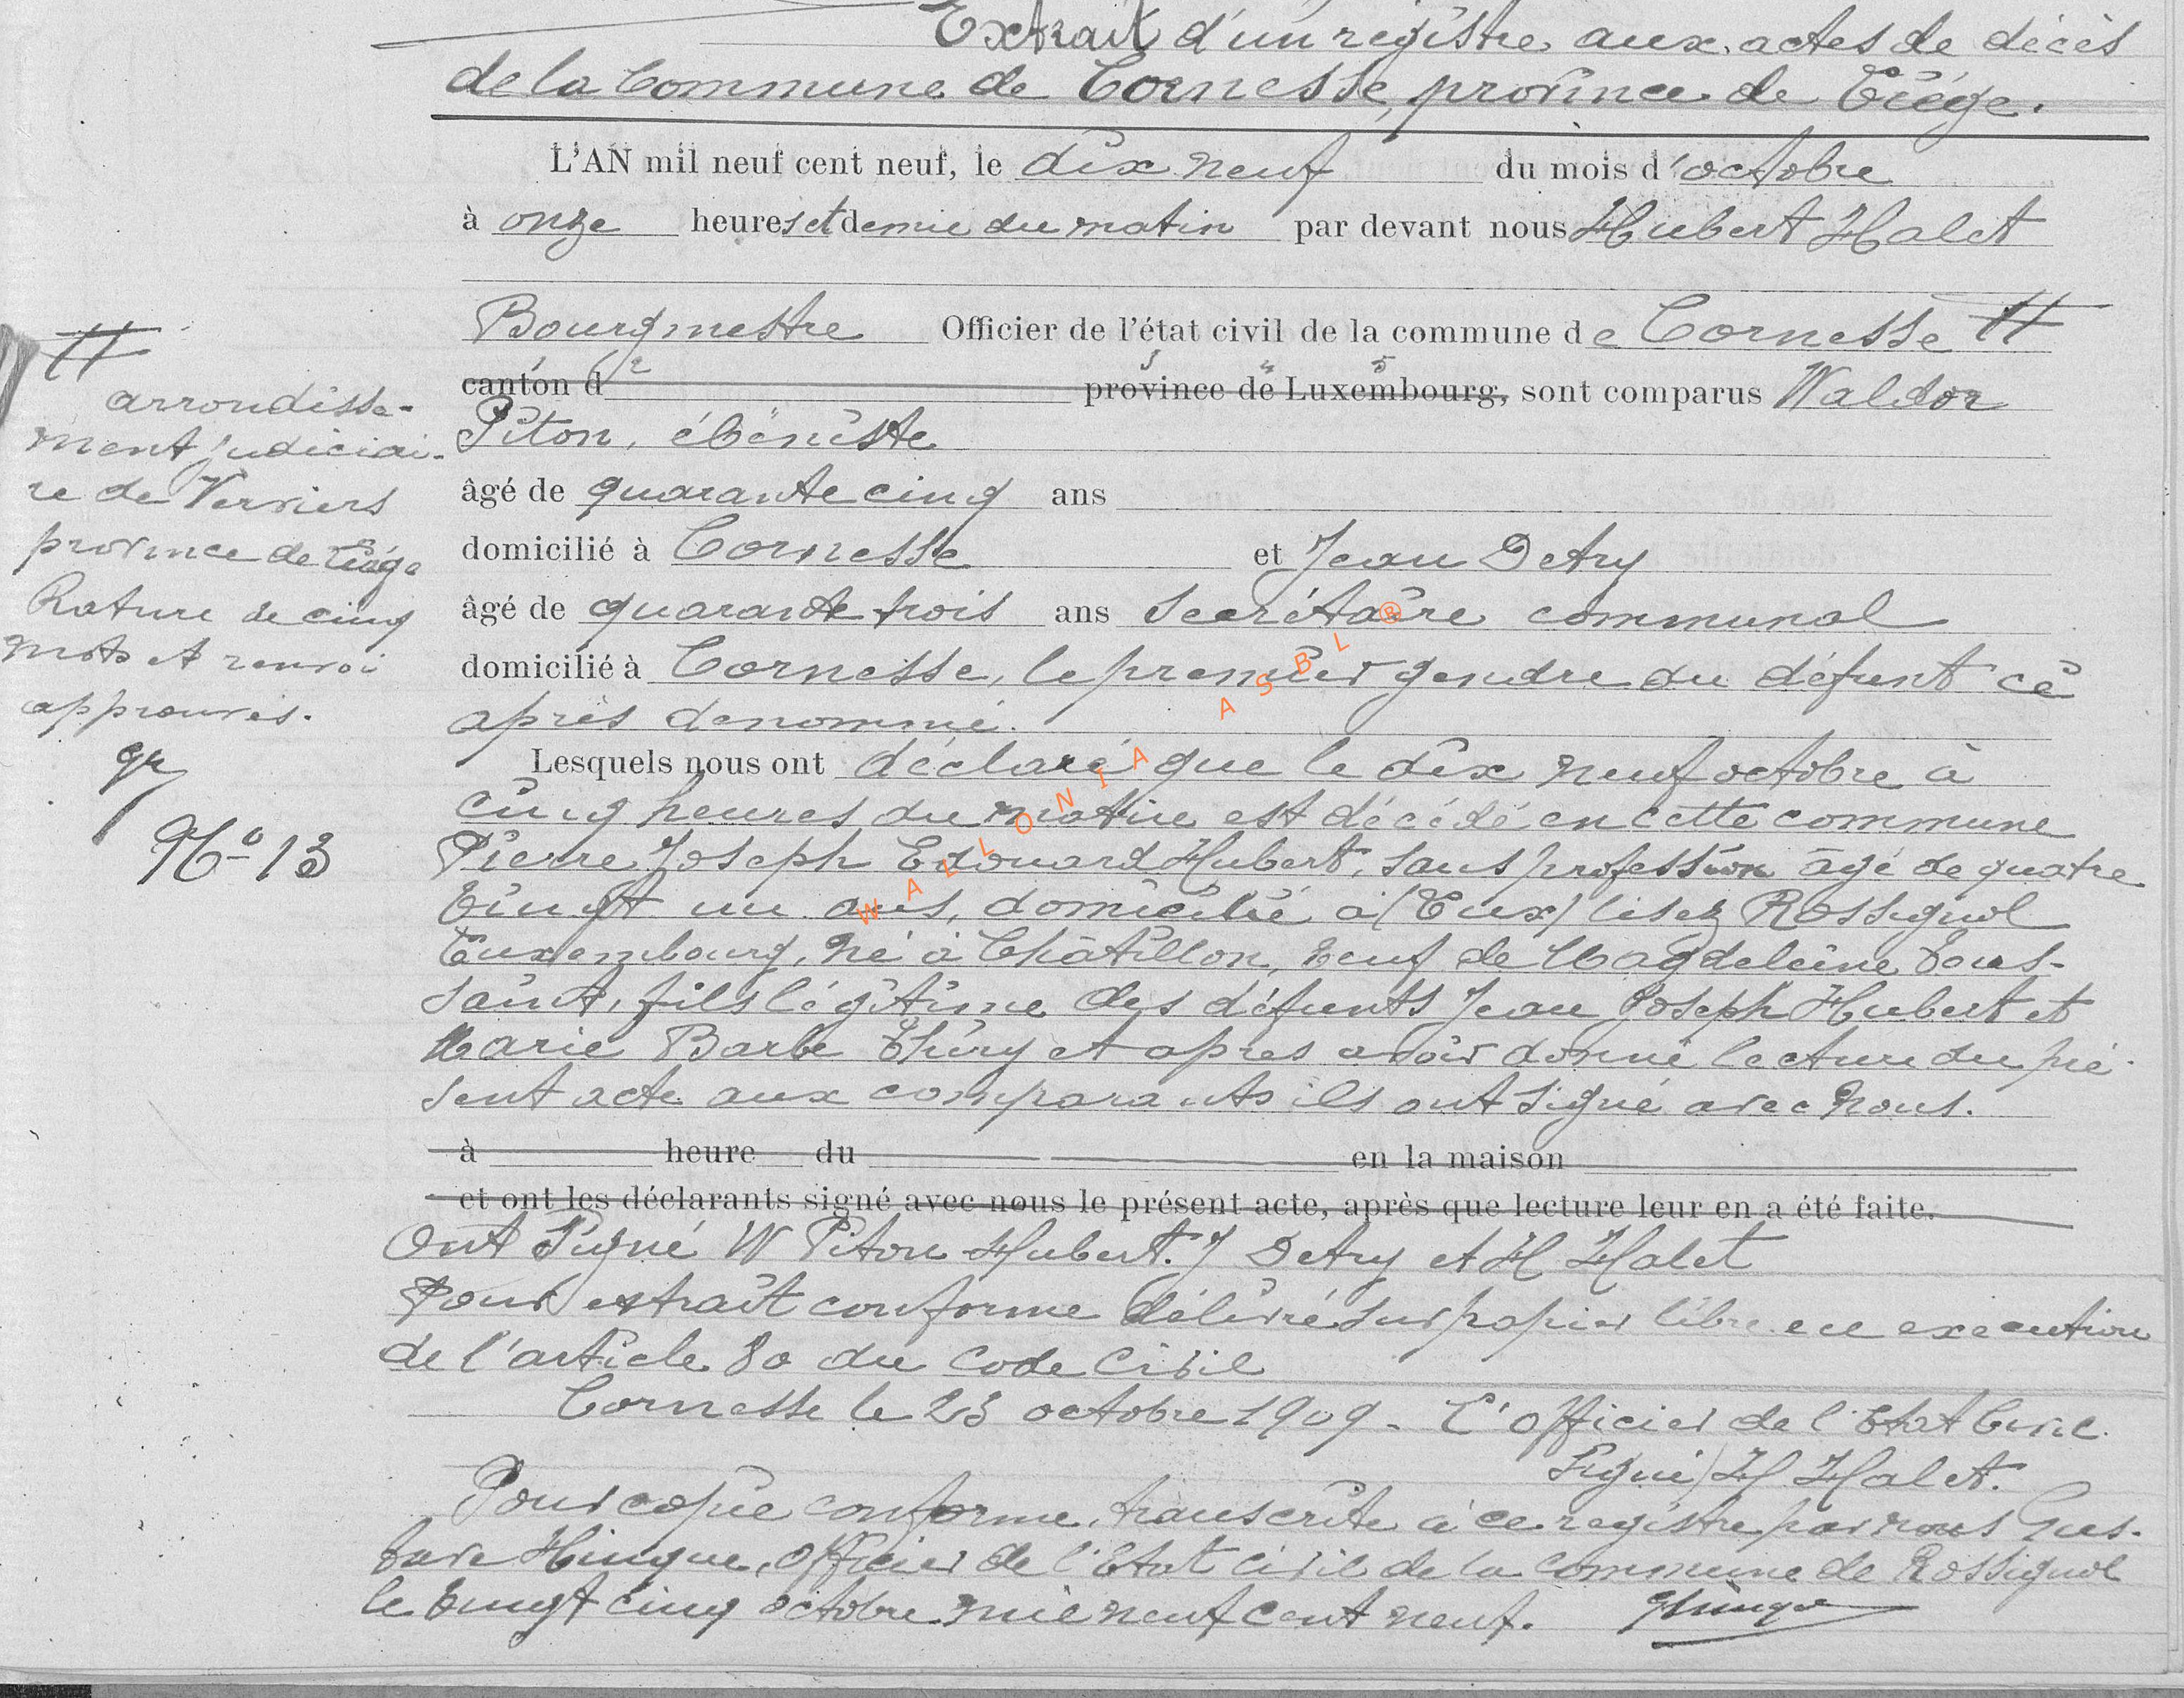 Extrait d'un régistre aux actes de décès
de la Commune de Cornesse, province de Liége.
L'AN mil neuf cent neuf, le dix neuf du mois d'octobre
à onze heures et demie du matin par devant nous Hubert Halet
Bourgmestre Officier de l'état civil de la commune de Cornesse #
canton d province de Luxembourg, sont comparus Waldor
Piton, ébéniste
âgé de quarante cinq ans
domicilié à Cornesse et Jean Detry
âgé de quarante trois ans Secrétaire communal
domicilié à Cornesse, le premier gendre du défunt ci
après dénommé.
Lesquels nous ont déclaré que le dix neuf octobre à
cinq heures du matin est décédé en cette commune
Pierre Joseph Edouard Hubert, sans profession âgé de quatre
vingt un ans, domicilié à (Lux) lisez Rossignol
Luxembourg, né à Châtillon, veuf de Magdeleine Tous-
saint, fils légitime des défunts Jean Joseph Hubert et
Marie Barbe Thiry et après avoir donné lecture du pré-
sent acte aux comparants ils ont signé avec nous.
à heure du en la maison
et ont les déclarants signé avec nous le présent acte, après que lecture leur en a été faite.
Ont Signé W Piton-Hubert. J Detry et H Halet
Pour extrait conforme délivré sur papier libre en exécution
de l'article 80 du Code Civil
Cornesse le 23 octobre 1909. L'officier de l'Etat Civil
Signé) H Halet.
Pour copie conforme, transcrite à ce régistre par nous Gus-
tave Hinque, Officier de l'Etat civil de la commune de Rossignol
le vingt cinq octobre mil neuf cent neuf. GHinque
#
arrondisse-
ment judiciai-
re de Verviers
province de Liége
Rature de cinq
mots et renvoi
approuvés.
N° 13
WALLONIA ASBL ®